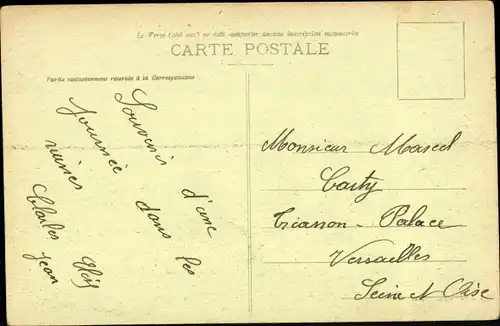 Le Verso (côté vue) ne doit comporter aucune inscription manuscrite
CARTE POSTALE
Partie exclusivement réservée à la Correspondance
Souvenir d'une
journée dans les
ruines
Charles
Jean
Monsieur Marcel
Trianon - Palace
Versailles
Seine et Oise